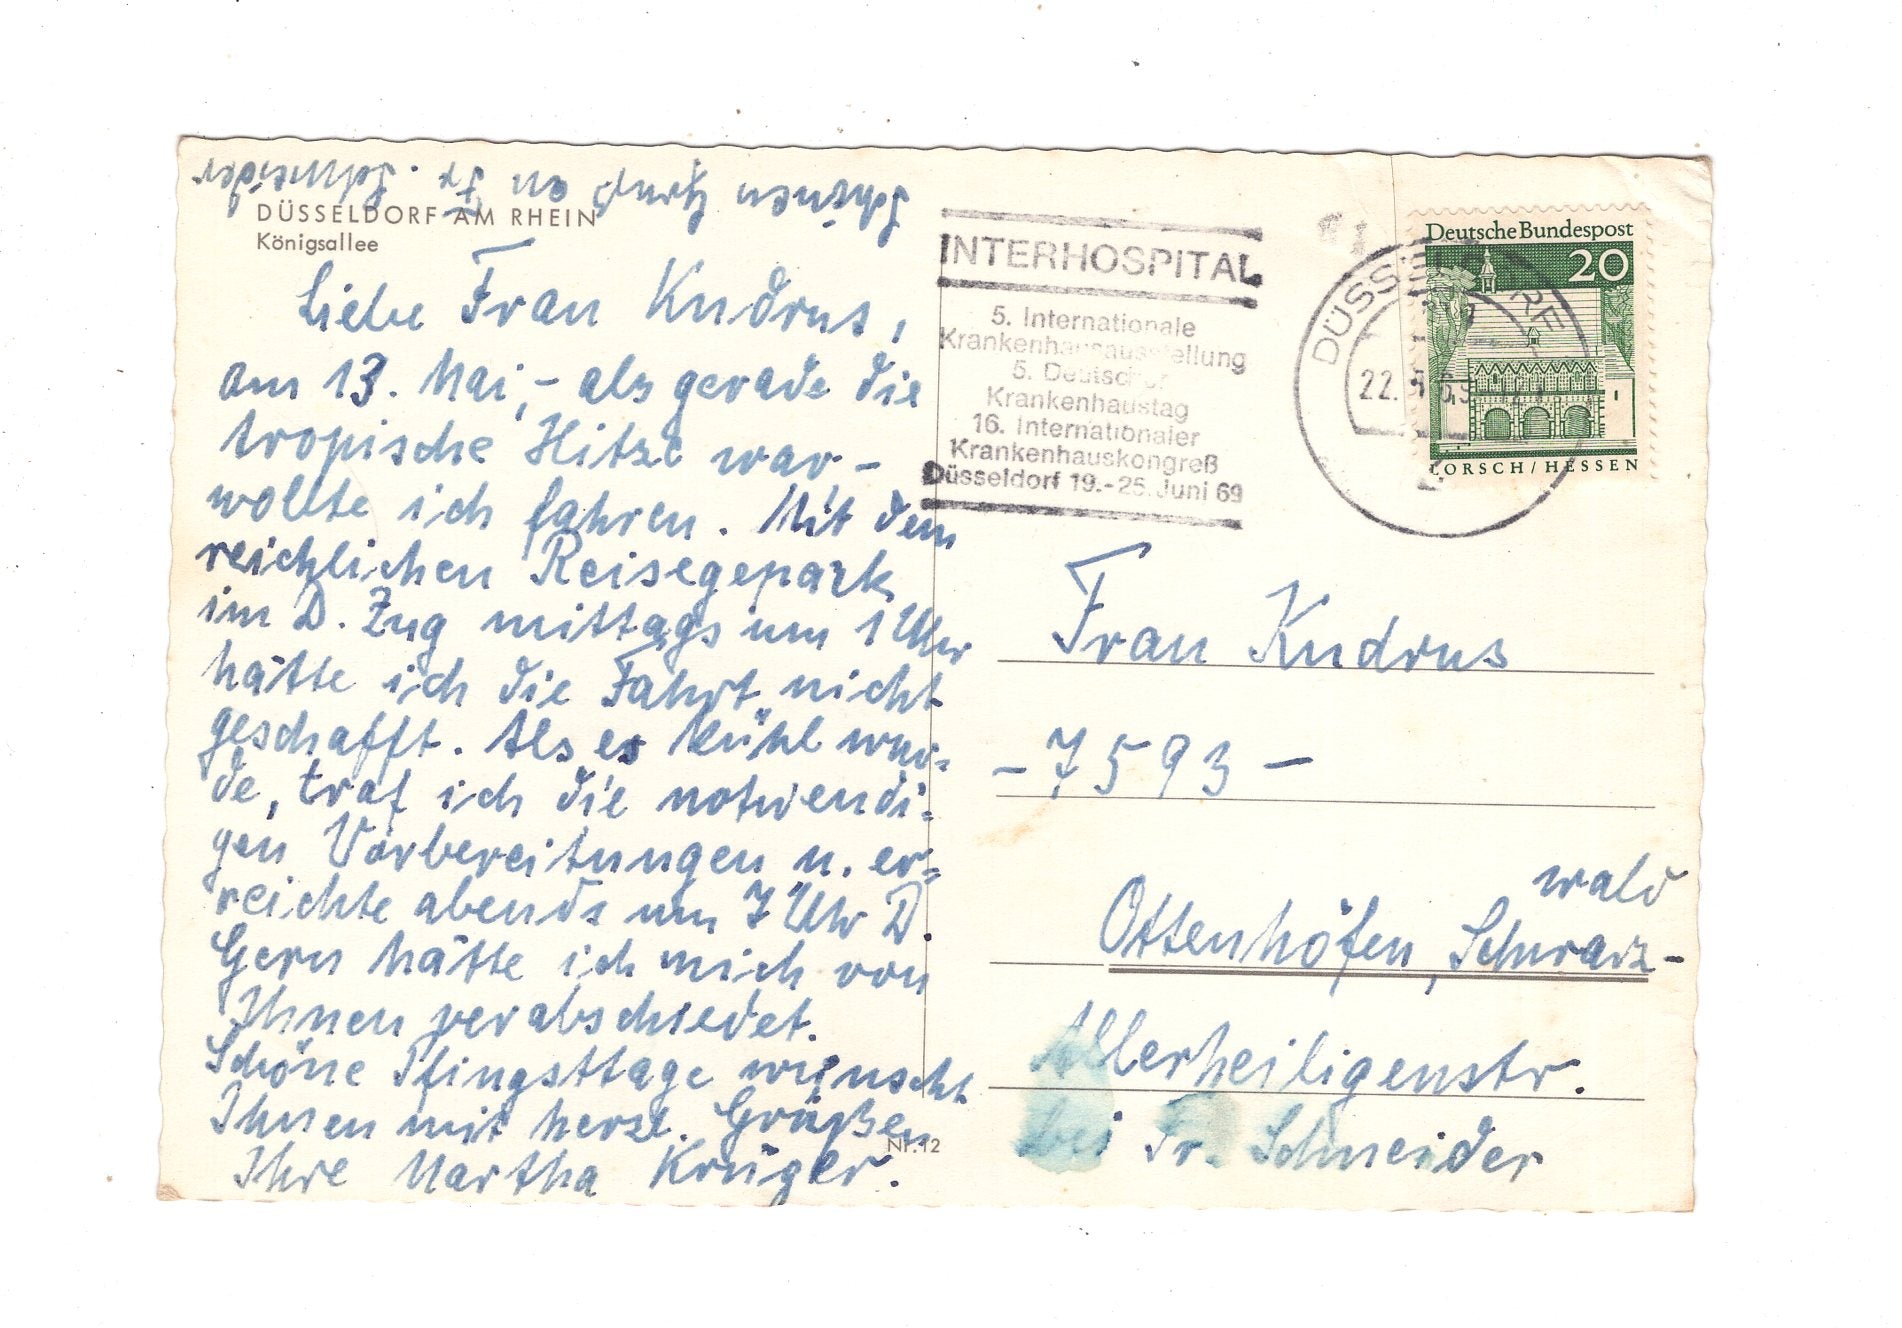 Schönen Gruß an Fr. Schneider
DÜSSELDORF AM RHEIN
Königsallee
Liebe Frau Kudrus,
am 13. Mai, - als gerade die
tropische Hitze war -
wollte ich fahren. Mit dem
reichlichen Reisegepäck
im D. Zug mittags um 1 Uhr
hätte ich die Fahrt nicht
geschafft. Als es kühl wur=
de, traf ich die notwendi=
gen Vorbereitungen u. er=
reichte abends um 7 Uhr D.
Gern hätte ich mich von
Ihnen verabschiedet.
Schöne Pfingsttage wünscht
Ihnen mit herzl. Grüßen
Ihre Martha Krüger.
Nr. 12
INTERHOSPITAL
5. Internationale
Krankenhausausstellung
5. Deutscher
Krankenhaustag
16. Internationaler
Krankenhauskongreß
Düsseldorf 19.-25. Juni 69
Deutsche Bundespost
20
LORSCH/HESSEN
22. 5. 69
Frau Kudrus
- 7593 -
Ottenhöfen, Schwarz-
wald
Allerheiligenstr.
bei Fr. Schneider